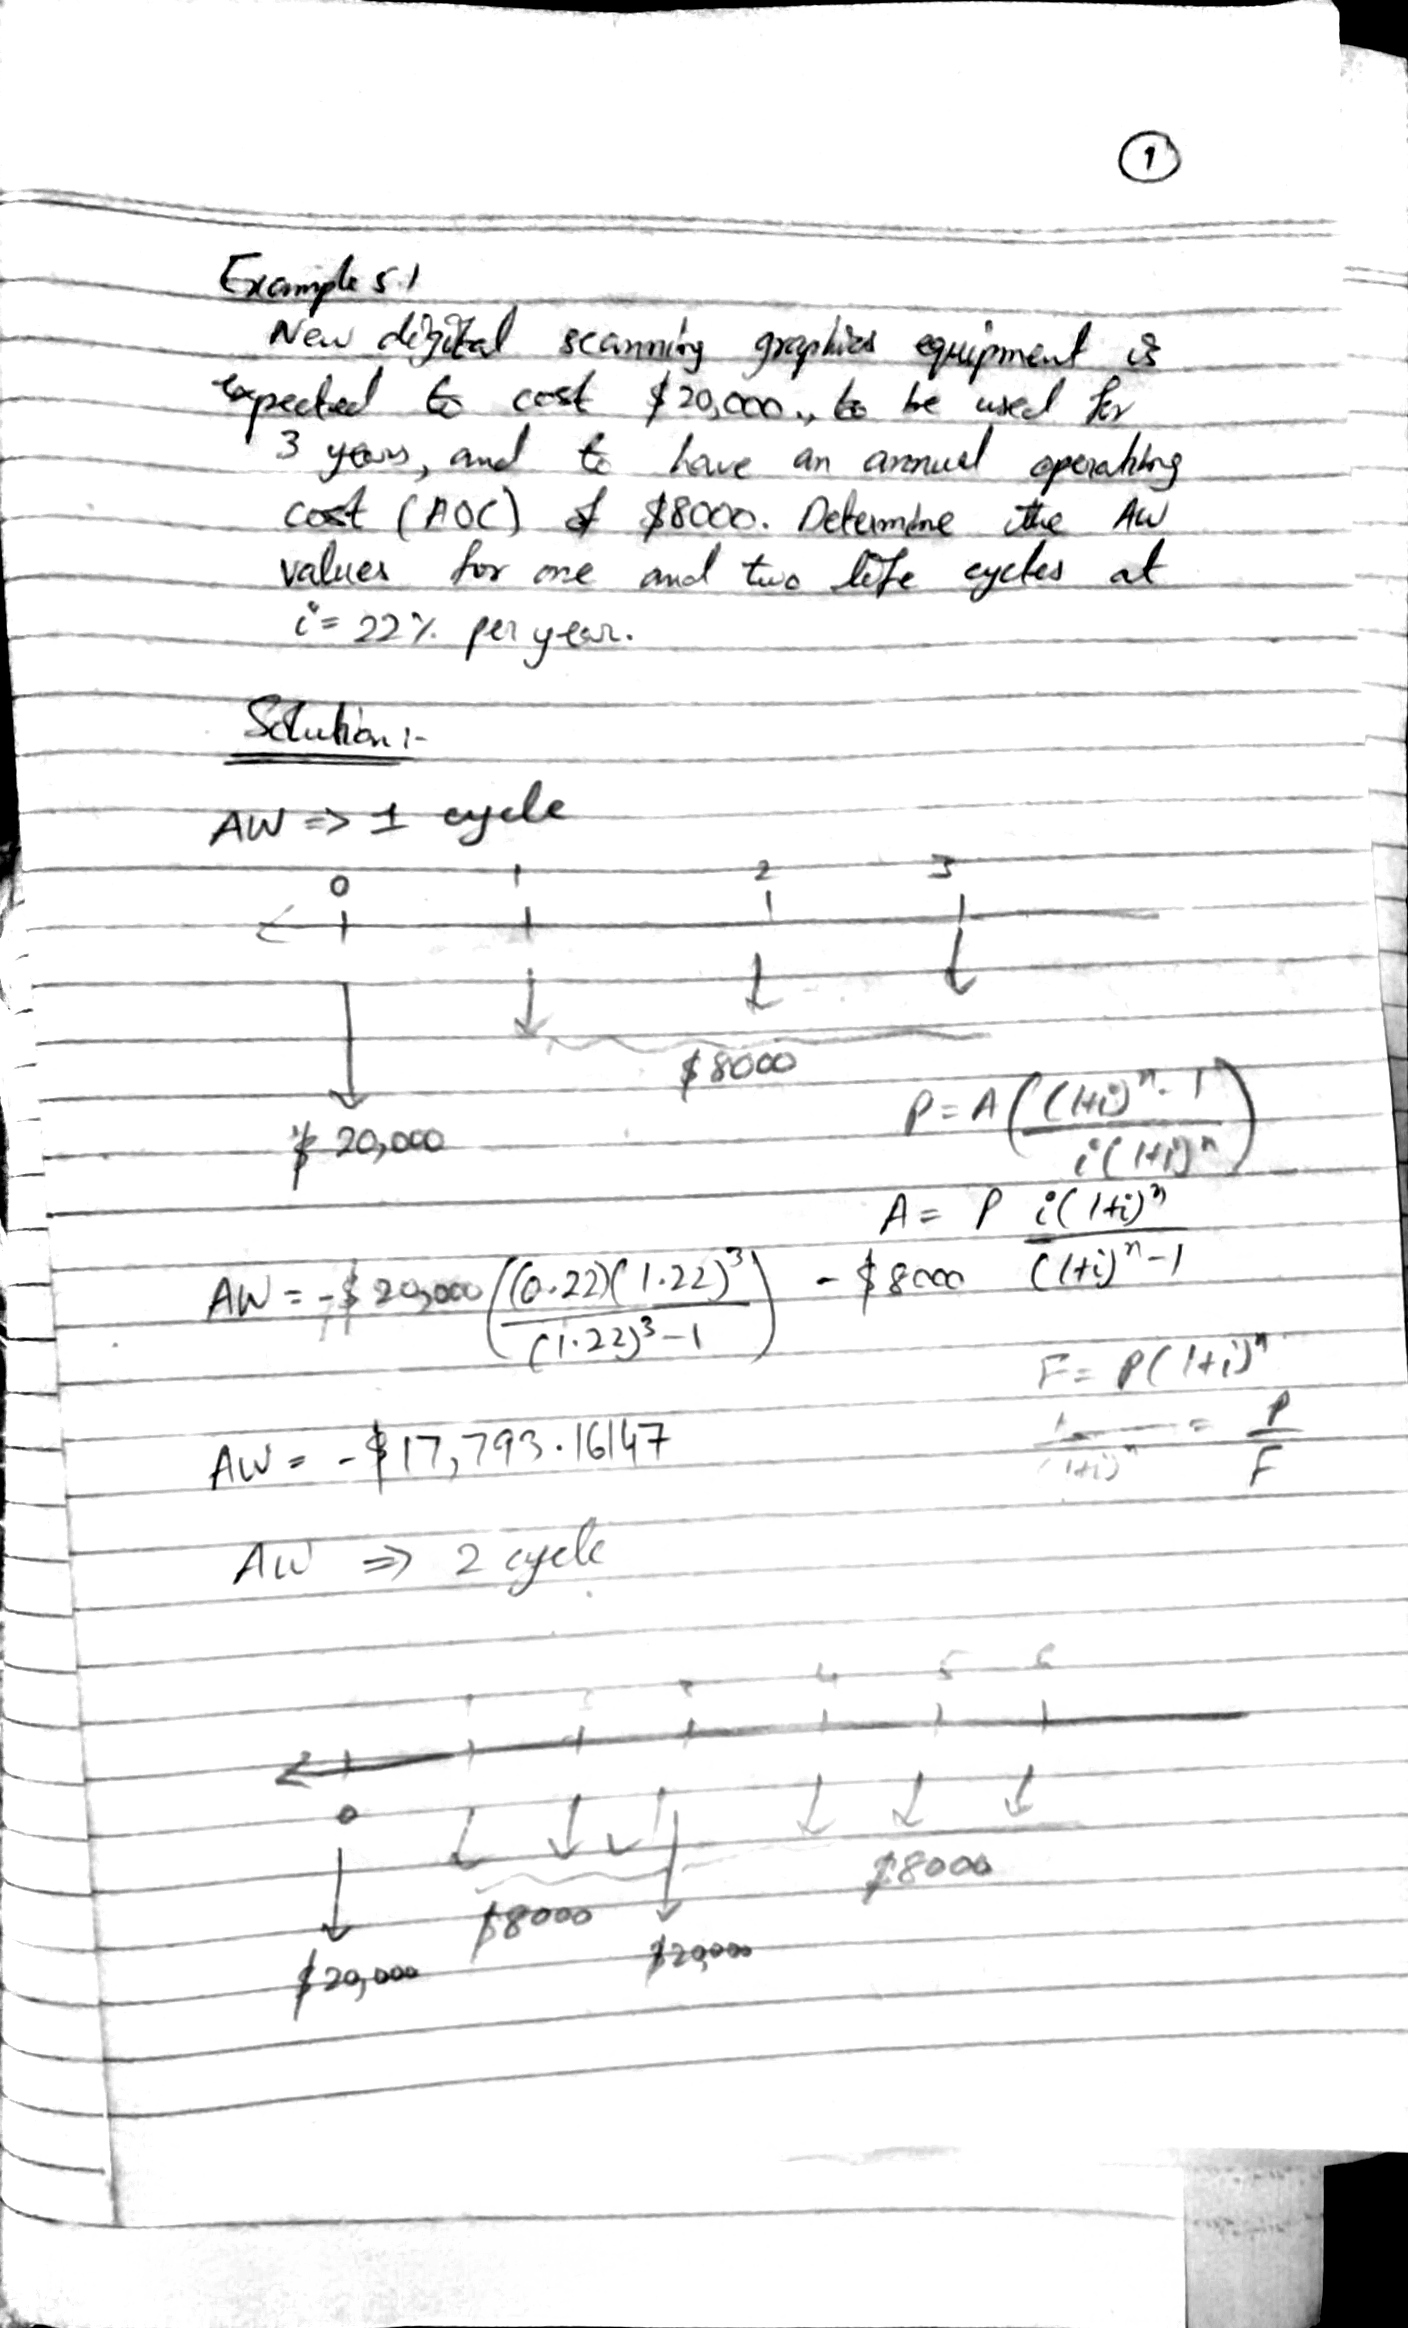 1
Example 5.1
New digital scanning graphics equipment is
expected to cost $20,000, to be used for
3 years, and to have an annual operating
cost (AOC) of $8000. Determine the AW
values for one and two life cycles at
i = 22% per year.
Solution:-
AW => 1 cycle
0 1 2 3
$8000
$20,000
P = A ( ((1+i)^n - 1) / (i(1+i)^n) )
A = P i(1+i)^n / ((1+i)^n - 1)
AW = -$20,000 ( (0.22)(1.22)^3 / ((1.22)^3 - 1) ) - $8000
F = P(1+i)^n
1 / (1+i)^n = P / F
AW = -$17,793.16147
AW => 2 cycle
4 5 6
0
$8000
$8000
$20,000
$20,000